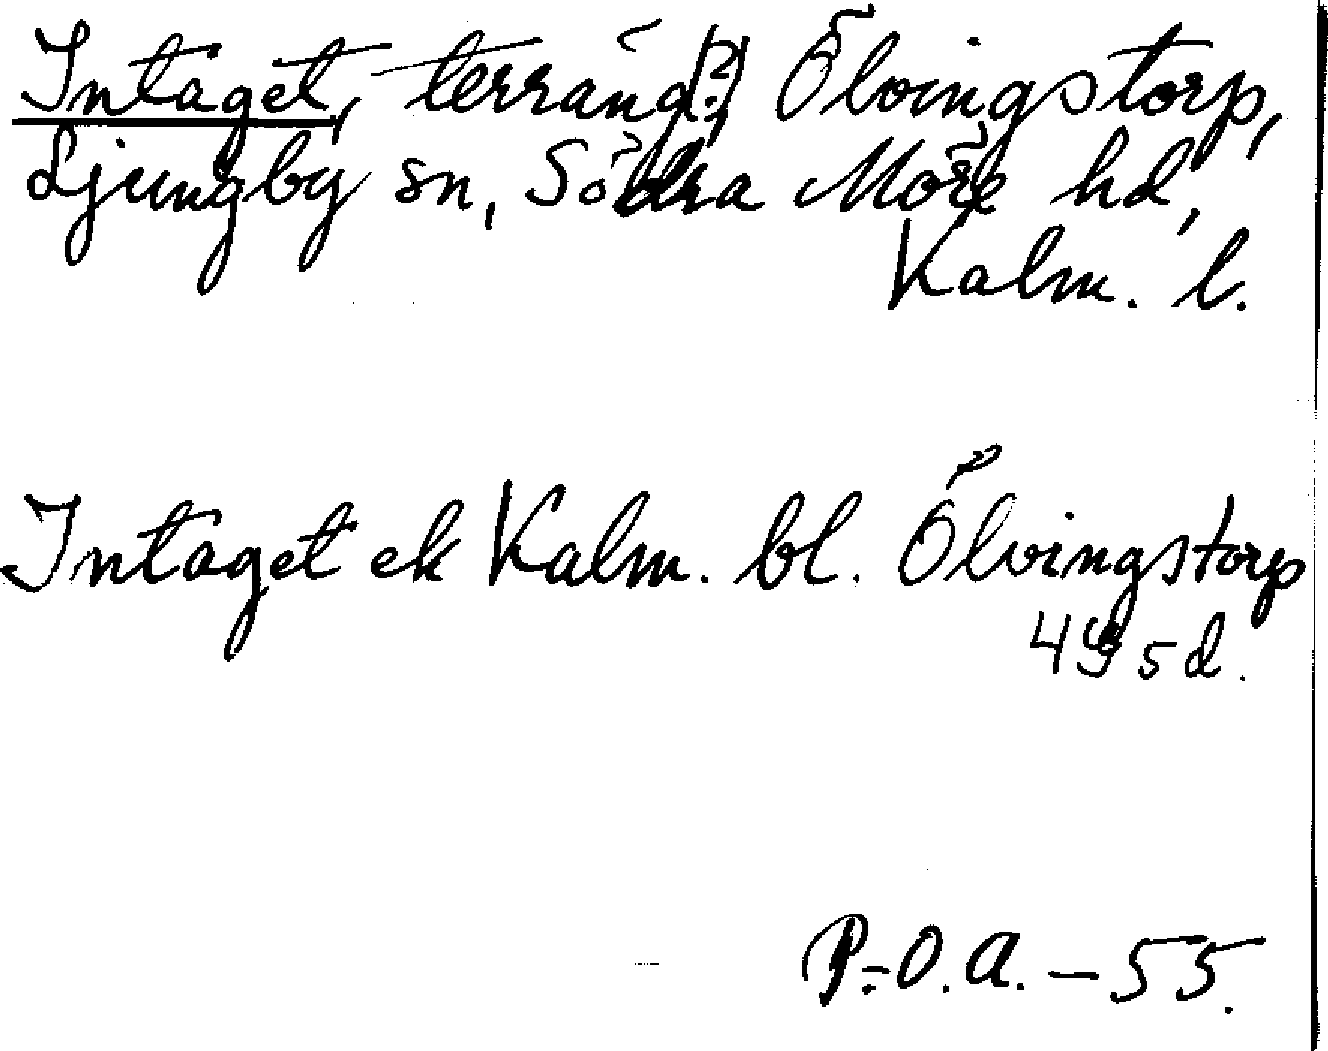 Intaget, terräng(?) Ölvingstorp,
Ljungby sn, Södra Möre hd,
Kalm. l.
Intaget ek Kalm. bl. Ölvingstorp
495d.
P.-O.A. – 55.